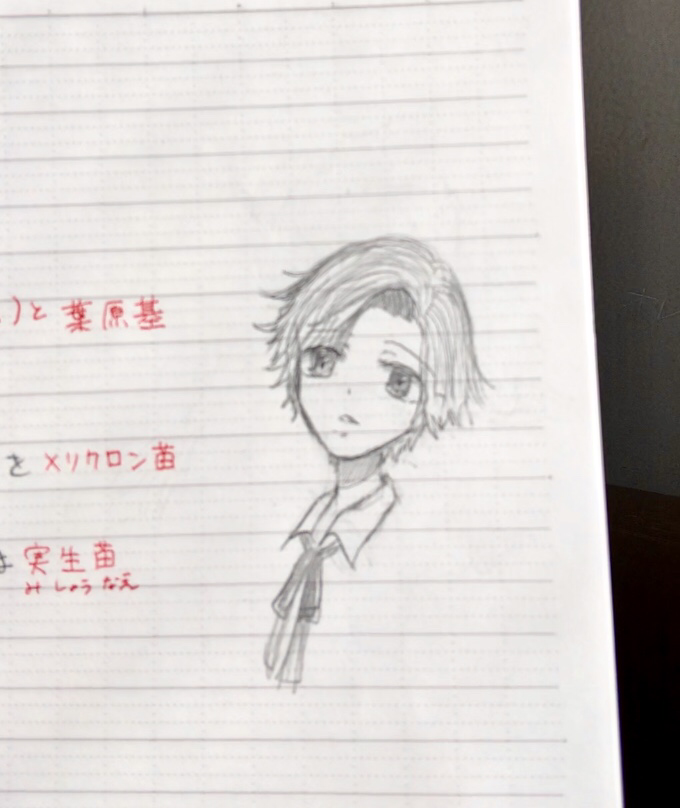 )と 葉原基
を メリクロン苗
は 実生苗
みしょうなえ